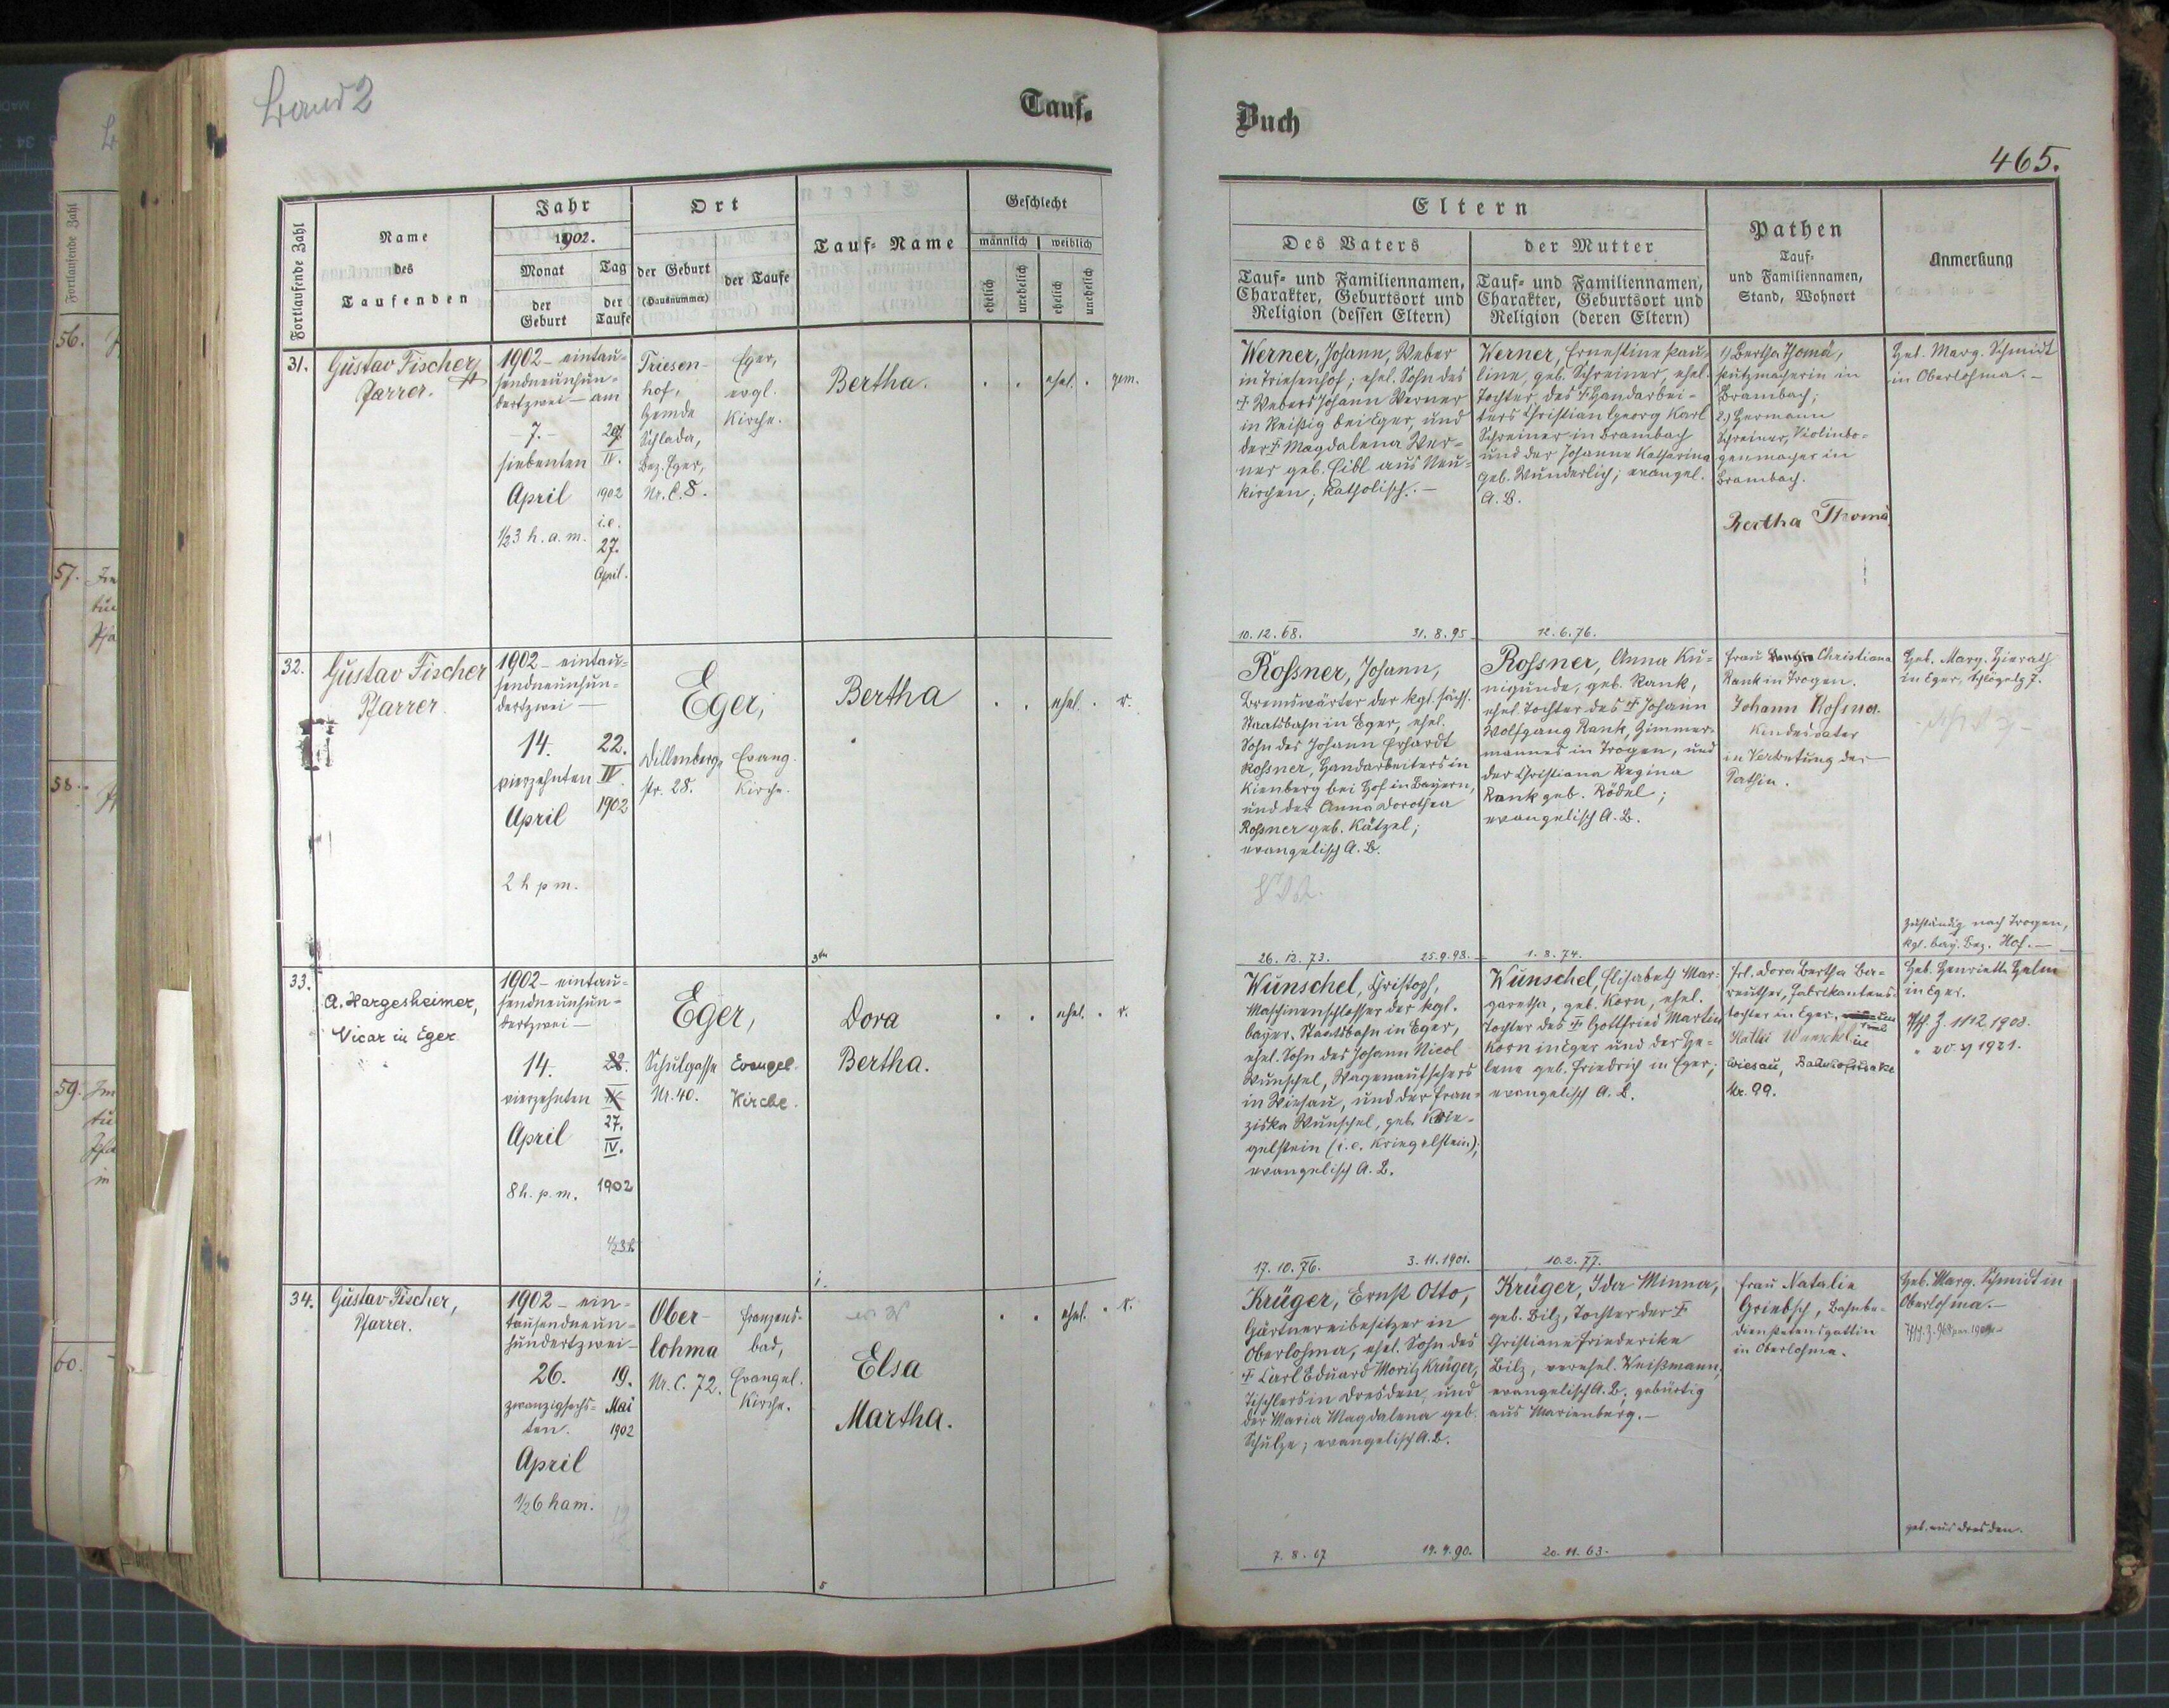 Band 2
Tauf-
Buch
465.
Fortlaufende Zahl
Name
des
Taufenden
Jahr
1902.
Monat
der
Geburt
Tag
der
Taufe
Ort
der Geburt
(Hausnummer)
der Taufe
Tauf-Name
Geschlecht
männlich
weiblich
ehelich
unehelich
ehelich
unehelich
Eltern
Des Vaters
Tauf- und Familiennamen,
Charakter, Geburtsort und
Religion (dessen Eltern)
der Mutter
Tauf- und Familiennamen,
Charakter, Geburtsort und
Religion (deren Eltern)
Pathen
Tauf-
und Familiennamen,
Stand, Wohnort
Anmerkung
31.
Gustav Fischer,
Pfarrer.
1902 – eintau-
sendneunhun-
dertzwei – am
– 7. –
siebenten
April
½3 h. a. m.
IV.
1902
i.e.
27.
April.
Triesen-
hof,
Gemde
Schlada,
Bez. Eger,
Nr. C. 8.
Eger,
evgl.
Kirche.
Bertha.
ehel.
gem.
Werner, Johann, Weber
in Triesenhof; ehel. Sohn des
† Webers Johann Werner
in Reißig bei Eger, und
der † Magdalena Wer-
ner geb. Eibl aus Neu-
kirchen; katholisch. –
10. 12. 68.
31. 8. 95
Werner, Ernestine Pau-
line, geb. Schreiner, ehel.
Tochter des † Handarbei-
ters Christian Georg Karl
Schreiner in Brambach
und der Johanne Katharina
geb. Wunderlich; evangel.
A. B.
12. 6. 76.
1) Bertha Thomä,
Putzmacherin in
Brambach;
2.) Hermann
Schreiner, Violinbo-
genmacher in
Brambach.
Bertha Thomä
Heb. Marg. Schmidt
in Oberlohma. –
32.
Gustav Fischer
Pfarrer.
1902 – eintau-
sendneunhun-
dertzwei –
14.
vierzehnten
April
2 h p m.
22.
IV.
1902
Eger,
Dillenberg-
str. 28.
Evang.
Kirche.
Bertha
ehel.
v.
Rossner, Johann,
Bremswärter der kgl. sächs.
Staatsbahn in Eger, ehel.
Sohn des Johann Erhardt
Rossner, Handarbeiters in
Kienberg bei Hof in Bayern,
und der Anna Dorothea
Rossner geb. Kätzel;
evangelisch A. B.
26. 12. 73.
25. 9. 98.
Rossner, Anna Ku-
nigunde, geb. Rank,
ehel. Tochter des † Johann
Wolfgang Rank, Zimmer-
mannes in Trogen, und
der Christiana Regina
Rank geb. Rödel;
evangelisch A. B.
1. 8. 74.
Frau Christiana
Rank in Trogen.
Johann Rossner
Kindesvater
in Vertretung der
Pathin.
Heb. Marg. Hierath
in Eger,
Zuständig nach Trogen,
kgl. bay. Bez. Hof. –
33.
A. Hargesheimer,
Vicar in Eger
1902 – eintau-
sendneunhun-
dertzwei –
14.
vierzehnten
April
8 h. p. m.
27.
IV.
1902
Eger,
Schulgasse
Nr. 40.
Evangel.
Kirche.
Dora
Bertha.
ehel.
v.
Wunschel, Christoph,
Maschinenschlosser der kgl.
bayer. Staatsbahn in Eger,
ehel. Sohn des Johann Nicol
Wunschel, Wagenaufsehers
in Wiesau, und der Fran-
ziska Wunschel, geb. Krie-
gelstein (i. e. Kriegelstein);
evangelisch A. B.
17. 10. 76.
3. 11. 1901.
Wunschel, Elisabeth Mar-
garetha, geb. Korn, ehel.
Tochter des † Gottfried Martin
Korn in Eger und der He-
lene geb. Friedrich in Eger;
evangelisch A. B.
10. 2. 77.
Frl. Dora Bertha Ber-
reuther, Fabrikantens-
tochter in Eger,
Kathi Wunschel in
Wiesau,
Nr. 99.
Heb. Henriette Helm
in Eger.
1908.
1921.
34.
Gustav Fischer,
Pfarrer.
1902 – ein-
tausendneun-
hundertzwei –
26.
zwanzigsechs-
ten.
April
½6 h a m.
19.
Mai
1902
Ober-
lohma
Nr. C. 72.
Franzens-
bad,
Evangel.
Kirche.
Elsa
Martha.
ehel.
v.
Krüger, Ernst Otto,
Gärtnereibesitzer in
Oberlohma, ehel. Sohn des
† Carl Eduard Moritz Krüger,
Tischlers in Dresden, und
der Maria Magdalena geb.
Schulze; evangelisch A. B.
7. 8. 67
19. 9. 90.
Krüger, Ida Minna,
geb. Bilz, Tochter der †
Christiane Friederike
Bilz, verehel. Weißmann,
evangelisch A. B., gebürtig
aus Marienberg. –
20. 11. 63.
Frau Natalie
Griebsch, Bahnbe-
dienstetensgattin
in Oberlohma.
Heb. Marg. Schmidt in
Oberlohma. –
geb. aus Dresden.
56.
57.
58.
59.
60.